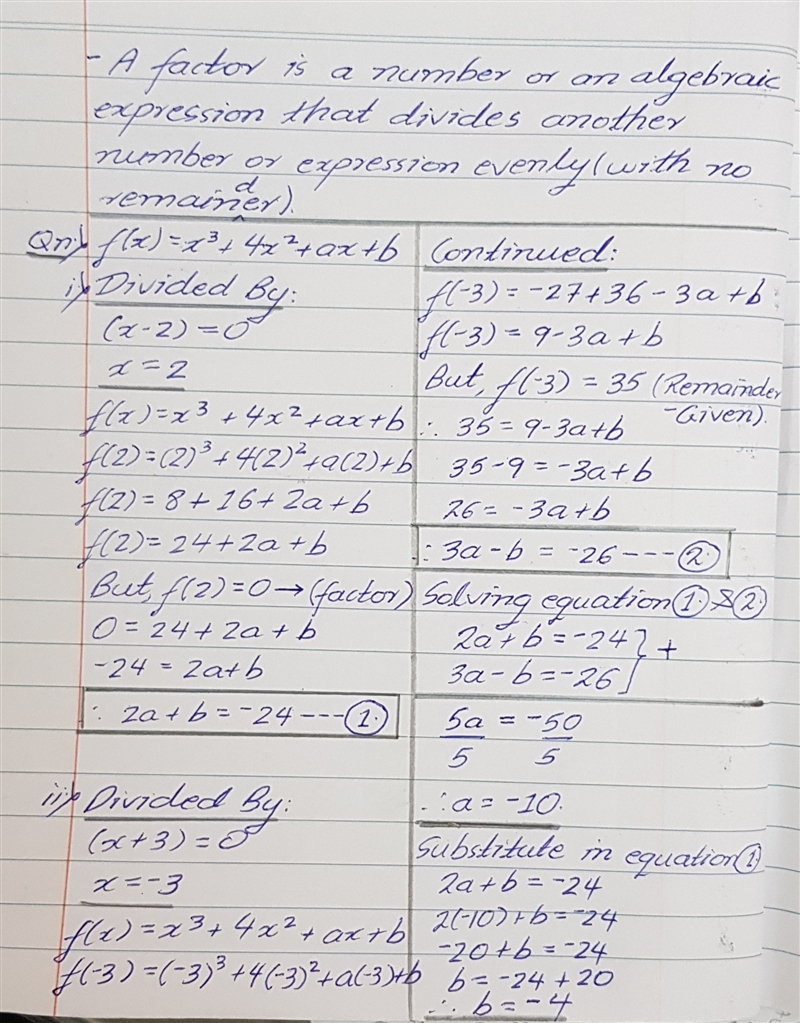 - A factor is a number or an algebraic
expression that divides another
number or expression evenly (with no
remainder).
Qn:) f(x) = x³ + 4x² + ax + b
i:) Divided By:
(x - 2) = 0
x = 2
f(x) = x³ + 4x² + ax + b
f(2) = (2)³ + 4(2)² + a(2) + b
f(2) = 8 + 16 + 2a + b
f(2) = 24 + 2a + b
But, f(2) = 0 → (factor)
0 = 24 + 2a + b
-24 = 2a + b
∴ 2a + b = -24 ---- ①
ii:) Divided By:
(x + 3) = 0
x = -3
f(x) = x³ + 4x² + ax + b
f(-3) = (-3)³ + 4(-3)² + a(-3) + b
Continued:
f(-3) = -27 + 36 - 3a + b
f(-3) = 9 - 3a + b
But, f(-3) = 35 (Remainder
-Given).
∴ 35 = 9 - 3a + b
35 - 9 = -3a + b
26 = -3a + b
∴ 3a - b = -26 ---- ②
Solving equation ① & ②
2a + b = -24 } +
3a - b = -26
5a = -50
5 5
∴ a = -10.
Substitute in equation ①
2a + b = -24
2(-10) + b = -24
-20 + b = -24
b = -24 + 20
∴ b = -4